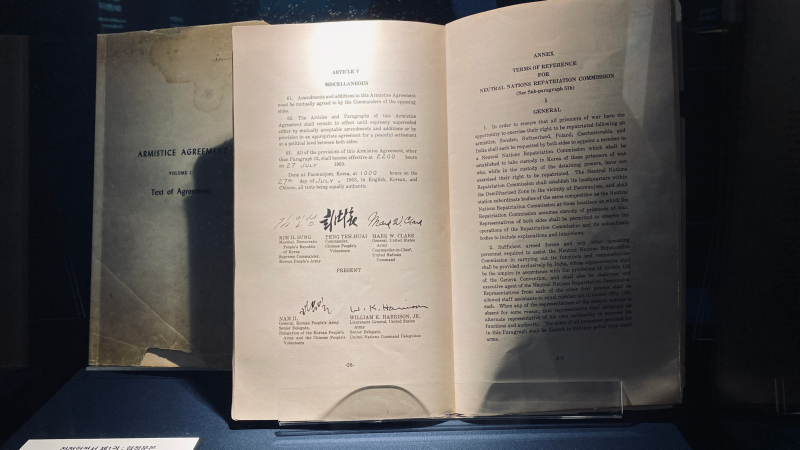 ARMISTICE AGREEMENT
VOLUME I
Text of Agreement
ARTICLE V
MISCELLANEOUS
61. Amendments and additions to this Armistice Agreement
must be mutually agreed to by the Commanders of the opposing
sides.
62. The Articles and Paragraphs of this Armistice
Agreement shall remain in effect until expressly superseded
either by mutually acceptable amendments and additions or by
provision in an appropriate agreement for a peaceful settlement
at a political level between both sides.
63. All of the provisions of this Armistice Agreement, other
than Paragraph 12, shall become effective at 2200 hours
on 27 JULY 1953.
Done at Panmunjom, Korea, at 1000 hours on the
27th day of JULY, 1953, in English, Korean, and
Chinese, all texts being equally authentic.
김일성 彭德懷 Mark W. Clark
KIM IL SUNG PENG TEH-HUAI MARK W. CLARK
Marshal, Democratic Commander, General, United States
People's Republic Chinese People's Army
of Korea Volunteers Commander-in-Chief,
Supreme Commander, United Nations
Korean People's Army Command
PRESENT
남일 W. K. Harrison
NAM IL WILLIAM K. HARRISON, JR.
General, Korean People's Army Lieutenant General, United States
Senior Delegate, Army
Delegation of the Korean People's Senior Delegate
Army and the Chinese People's United Nations Command Delegation
Volunteers
-26-
ANNEX
TERMS OF REFERENCE
FOR
NEUTRAL NATIONS REPATRIATION COMMISSION
(See Sub-paragraph 51b)
I
GENERAL
1. In order to ensure that all prisoners of war have the
opportunity to exercise their right to be repatriated following an
armistice, Sweden, Switzerland, Poland, Czechoslovakia and
India shall each be requested by both sides to appoint a member to
a Neutral Nations Repatriation Commission which shall be
established to take custody in Korea of those prisoners of war
who, while in the custody of the detaining powers, have not
exercised their right to be repatriated. The Neutral Nations
Repatriation Commission shall establish its headquarters within
the Demilitarized Zone in the vicinity of Panmunjom, and shall
station subordinate bodies of the same composition as the Neutral
Nations Repatriation Commission at those locations at which the
Repatriation Commission assumes custody of prisoners of war.
Representatives of both sides shall be permitted to observe the
operations of the Repatriation Commission and its subordinate
bodies to include explanations and interviews.
2. Sufficient armed forces and any other operating
personnel required to assist the Neutral Nations Repatriation
Commission in carrying out its functions and responsibilities
shall be provided exclusively by India, whose representative shall
be the umpire in accordance with the provisions of Article 132
of the Geneva Convention, and shall also be chairman and
executive agent of the Neutral Nations Repatriation Commission.
Representatives from each of the other four powers shall be
allowed staff assistants in equal number not to exceed fifty (50)
each. When any of the representatives of the neutral nations is
absent for some reason, that representative shall designate an
alternate representative of his own nationality to exercise his
functions and authority. The arms of all personnel provided for
in this Paragraph shall be limited to military police type small
arms.